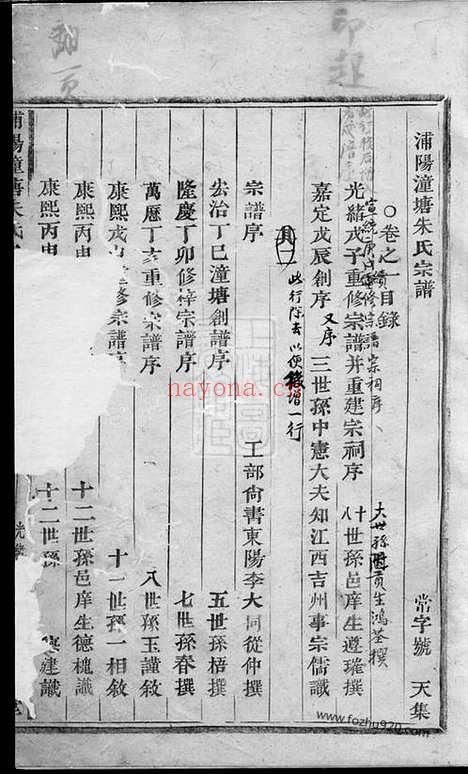 印起
翻一頁
浦陽潼塘朱氏宗譜 常字號 天集
卷之一 目錄
宣統庚戌重修宗譜宗祠序 大世孫國貢生鴻荃撰
光緒戊子重修宗譜并重建宗祠序 十八世孫邑庠生遵璀撰
嘉定戊辰創序 又序 三世孫中憲大夫知江西吉州事宗儒識
其一 此行除去以便後增一行
宗譜序 工部尙書東陽李大同從仲撰
宏治丁巳潼塘創譜序 五世孫梧撰
隆慶丁卯修梓宗譜序 七世孫春撰
萬曆丁亥重修宗譜序 八世孫玉謹敘
康熙戊 修宗譜序 十一世孫一相敘
康熙丙申 十二世孫邑庠生德槐識
康熙丙申 十二世孫 建識
浦陽潼塘朱氏
光緒
nayona.cn
www.fozhu920.com